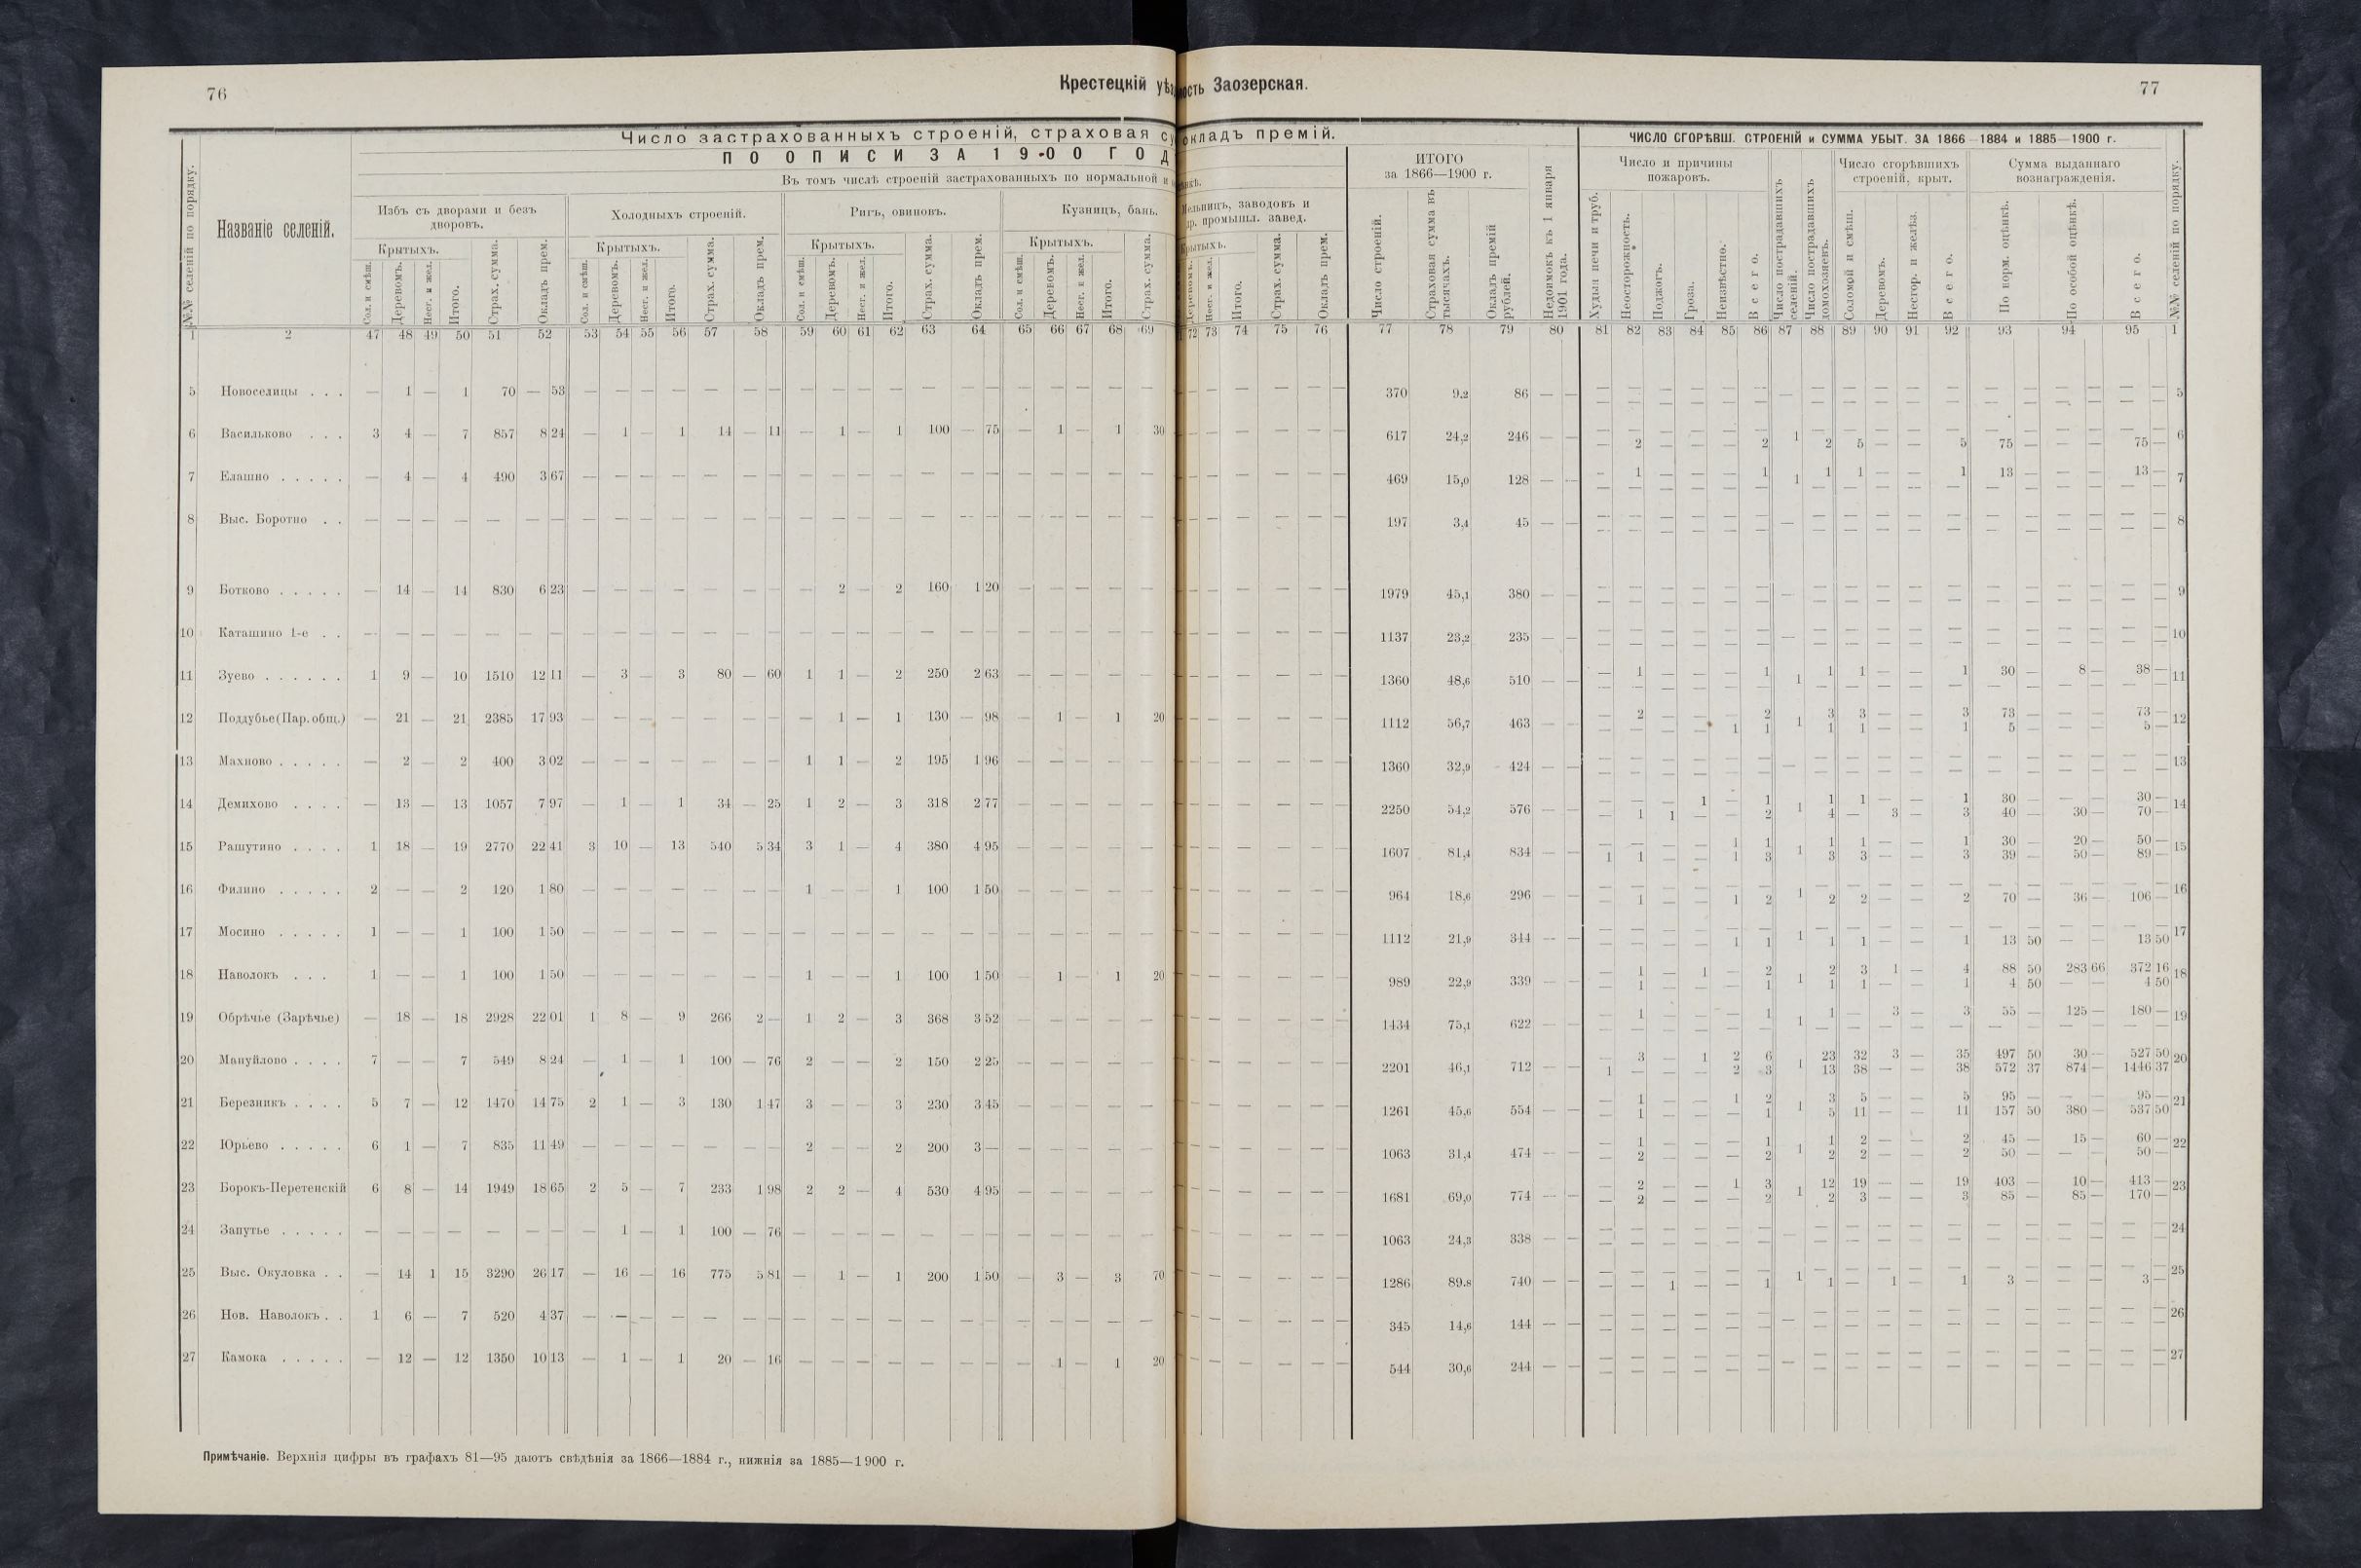 76
Крестецкій уѣз
Число застрахованныхъ строеній, страховая су
ПО ОПИСИ ЗА 1900 ГОД
Въ томъ числѣ строеній застрахованныхъ по нормальной и
№№ селеній по порядку.
Названіе селеній.
Избъ съ дворами и безъ дворовъ.
Холодныхъ строеній.
Ригъ, овиновъ.
Кузницъ, бань.
Крытыхъ. Крытыхъ. Крытыхъ. Крытыхъ.
Сол. и смѣш. Деревомъ. Несг. и жел. Итого. Страх. сумма. Окладъ прем. Сол. и смѣш. Деревомъ. Несг. и жел. Итого. Страх. сумма. Окладъ прем. Сол. и смѣш. Деревомъ. Несг. и жел. Итого. Страх. сумма. Окладъ прем. Сол. и смѣш. Деревомъ. Несг. и жел. Итого. Страх. сумма.
1 2 47 48 49 50 51 52 53 54 55 56 57 58 59 60 61 62 63 64 65 66 67 68 69
5 Новоселицы . . . — 1 — 1 70 — 53 — — — — — — — — — — — — — — — — —
6 Васильково . . . 3 4 — 7 857 8 24 — 1 — 1 14 — 11 — 1 — 1 100 — 75 — 1 — 1 30
7 Елашно . . . . . — 4 — 4 490 3 67 — — — — — — — — — — — — — — — — —
8 Выс. Боротно . . — — — — — — — — — — — — — — — — — — — — — — — —
9 Ботково . . . . . — 14 — 14 830 6 23 — — — — — — — — 2 — 2 160 1 20 — — — — —
10 Каташино 1-е . . — — — — — — — — — — — — — — — — — — — — — — — —
11 Зуево . . . . . . 1 9 — 10 1510 12 11 — 3 — 3 80 — 60 1 1 — 2 250 2 63 — — — — —
12 Поддубье (Пар. общ.) — 21 — 21 2385 17 93 — — — — — — — — 1 — 1 130 — 98 — 1 — 1 20
13 Махново . . . . . — 2 — 2 400 3 02 — — — — — — — 1 1 — 2 195 1 96 — — — — —
14 Демихово . . . . — 13 — 13 1057 7 97 — 1 — 1 34 — 25 1 2 — 3 318 2 77 — — — — —
15 Рашутино . . . . 1 18 — 19 2770 22 41 3 10 — 13 540 5 34 3 1 — 4 380 4 95 — — — — —
16 Филино . . . . . 2 — — 2 120 1 80 — — — — — — — 1 — — 1 100 1 50 — — — — —
17 Мосино . . . . . 1 — — 1 100 1 50 — — — — — — — — — — — — — — — — — —
18 Наволокъ . . . 1 — — 1 100 1 50 — — — — — — — 1 — — 1 100 1 50 — 1 — 1 20
19 Обрѣчье (Зарѣчье) — 18 — 18 2928 22 01 1 8 — 9 266 2 — 1 2 — 3 368 3 52 — — — — —
20 Мануйлово . . . . 7 — — 7 549 8 24 — 1 — 1 100 — 76 2 — — 2 150 2 25 — — — — —
21 Березникъ . . . . 5 7 — 12 1470 14 75 2 1 — 3 130 1 47 3 — — 3 230 3 45 — — — — —
22 Юрьево . . . . . 6 1 — 7 835 11 49 — — — — — — — 2 — — 2 200 3 — — — — — —
23 Борокъ-Перетенскій 6 8 — 14 1949 18 65 2 5 — 7 233 1 98 2 2 — 4 530 4 95 — — — — —
24 Запутье . . . . . — — — — — — — — 1 — 1 100 — 76 — — — — — — — — — — —
25 Выс. Окуловка . . — 14 1 15 3290 26 17 — 16 — 16 775 5 81 — 1 — 1 200 1 50 — 3 — 3 70
26 Нов. Наволокъ . . 1 6 — 7 520 4 37 — — — — — — — — — — — — — — — — —
27 Камока . . . . . — 12 — 12 1350 10 13 — 1 — 1 20 — 16 — — — — — — — 1 — 1 20
Примѣчаніе. Верхнія цифры въ графахъ 81—95 даютъ свѣдѣнія за 1866—1884 г., нижнія за 1885—1900 г.
77
ость Заозерская.
окладъ премій.
Мельницъ, заводовъ и др. промышл. завед.
ИТОГО
за 1866—1900 г.
ЧИСЛО СГОРѢВШ. СТРОЕНІЙ и СУММА УБЫТ. ЗА 1866—1884 и 1885—1900 г.
Число и причины пожаровъ.
Число сгорѣвшихъ строеній, крыт.
Сумма выданнаго вознагражденія.
Крытыхъ.
Деревомъ. Несг. и жел. Итого. Страх. сумма. Окладъ прем. Число строеній. Страховая сумма въ тысячахъ. Окладъ премій рублей. Недоимокъ къ 1 января 1901 года. Худыя печи и труб. Неосторожность. Поджогъ. Гроза. Неизвѣстно. Всего. Число пострадавшихъ селеній. Число пострадавшихъ домохозяевъ. Соломой и смѣш. Деревомъ. Нестор. и желѣз. Всего. По норм. оцѣнкѣ. По особой оцѣнкѣ. Всего. №№ селеній по порядку.
72 73 74 75 76 77 78 79 80 81 82 83 84 85 86 87 88 89 90 91 92 93 94 95 1
— — — — — 370 9,2 86 — — — — — — — — — — — — — — — — — — — — 5
— — — — — — — — — — — — — — — — —
— — — — — 617 24,2 246 — — 1 6
— 2 — — — 2 2 5 — — 5 75 — — — 75 —
— — — — — 469 15,0 128 — — — 1 — — — 1 1 1 1 — — 1 13 — — — 13 — 7
— — — — — — — — — — — — — — — — —
— — — — — 197 3,4 45 — — — — — — — — — — — — — — — — — — — — 8
— — — — — — — — — — — — — — — — —
— — — — — 1979 45,1 380 — — — — — — — — — — — — — — — — — — — — 9
— — — — — — — — — — — — — — — — —
— — — — — 1137 23,2 235 — — — — — — — — — — — — — — — — — — — — 10
— — — — — — — — — — — — — — — — —
— — — — — 1360 48,6 510 — — — 1 — — — 1 1 1 1 — — 1 30 — 8 — 38 — 11
— — — — — — — — — — — — — — — — —
— — — — — 1112 56,7 463 — — — 2 — — — 2 1 3 3 — — 3 73 — — — 73 — 12
— — — — 1 1 1 1 — — 1 5 — — — 5 —
— — — — — 1360 32,9 424 — — — — — — — — — — — — — — — — — — — — 13
— — — — — — — — — — — — — — — — —
— — — — — 2250 54,2 576 — — — — — 1 — 1 1 1 1 — — 1 30 — — — 30 — 14
— 1 1 — — 2 4 — 3 — 3 40 — 30 — 70 —
— — — — — 1607 81,4 834 — — — — — — 1 1 1 1 1 — — 1 30 — 20 — 50 — 15
1 1 — — 1 3 3 3 — — 3 39 — 50 — 89 —
— — — — — 964 18,6 296 — — — — — — — — 1 — — — — — — — — — — — 16
— 1 — — 1 2 2 2 — — 2 70 — 36 — 106 —
— — — — — 1112 21,9 344 — — — — — — — — 1 — — — — — — — — — — — 17
— — — — 1 1 1 1 — — 1 13 50 — — 13 50
— — — — — 989 22,9 339 — — — 1 — 1 — 2 1 2 3 1 — 4 88 50 283 66 372 16 18
— 1 — — — 1 1 1 — — 1 4 50 — — 4 50
— — — — — 1434 75,1 622 — — — 1 — — — 1 1 1 — 3 — 3 55 — 125 — 180 — 19
— — — — — — — — — — — — — — — — —
— — — — — 2201 46,1 712 — — — 3 — 1 2 6 1 23 32 3 — 35 497 50 30 — 527 50 20
1 — — — 2 3 13 38 — — 38 572 37 874 — 1446 37
— — — — — 1261 45,6 554 — — — 1 — — 1 2 1 3 5 — — 5 95 — — — 95 — 21
— 1 — — — 1 5 11 — — 11 157 50 380 — 537 50
— — — — — 1063 31,4 474 — — — 1 — — — 1 1 1 2 — — 2 45 — 15 — 60 — 22
— 2 — — — 2 2 2 — — 2 50 — — — 50 —
— — — — — 1681 69,0 774 — — — 2 — — 1 3 1 12 19 — — 19 403 — 10 — 413 — 23
— 2 — — — 2 2 3 — — 3 85 — 85 — 170 —
— — — — — 1063 24,3 338 — — — — — — — — — — — — — — — — — — — — 24
— — — — — — — — — — — — — — — — —
— — — — — 1286 89,8 740 — — 1 25
— — 1 — — 1 1 — 1 — 1 3 — — — 3 —
— — — — — 345 14,6 144 — — — — — — — — — — — — — — — — — — — — 26
— — — — — — — — — — — — — — — — —
— — — — — 544 30,6 244 — — — — — — — — — — — — — — — — — — — — 27
— — — — — — — — — — — — — — — — —